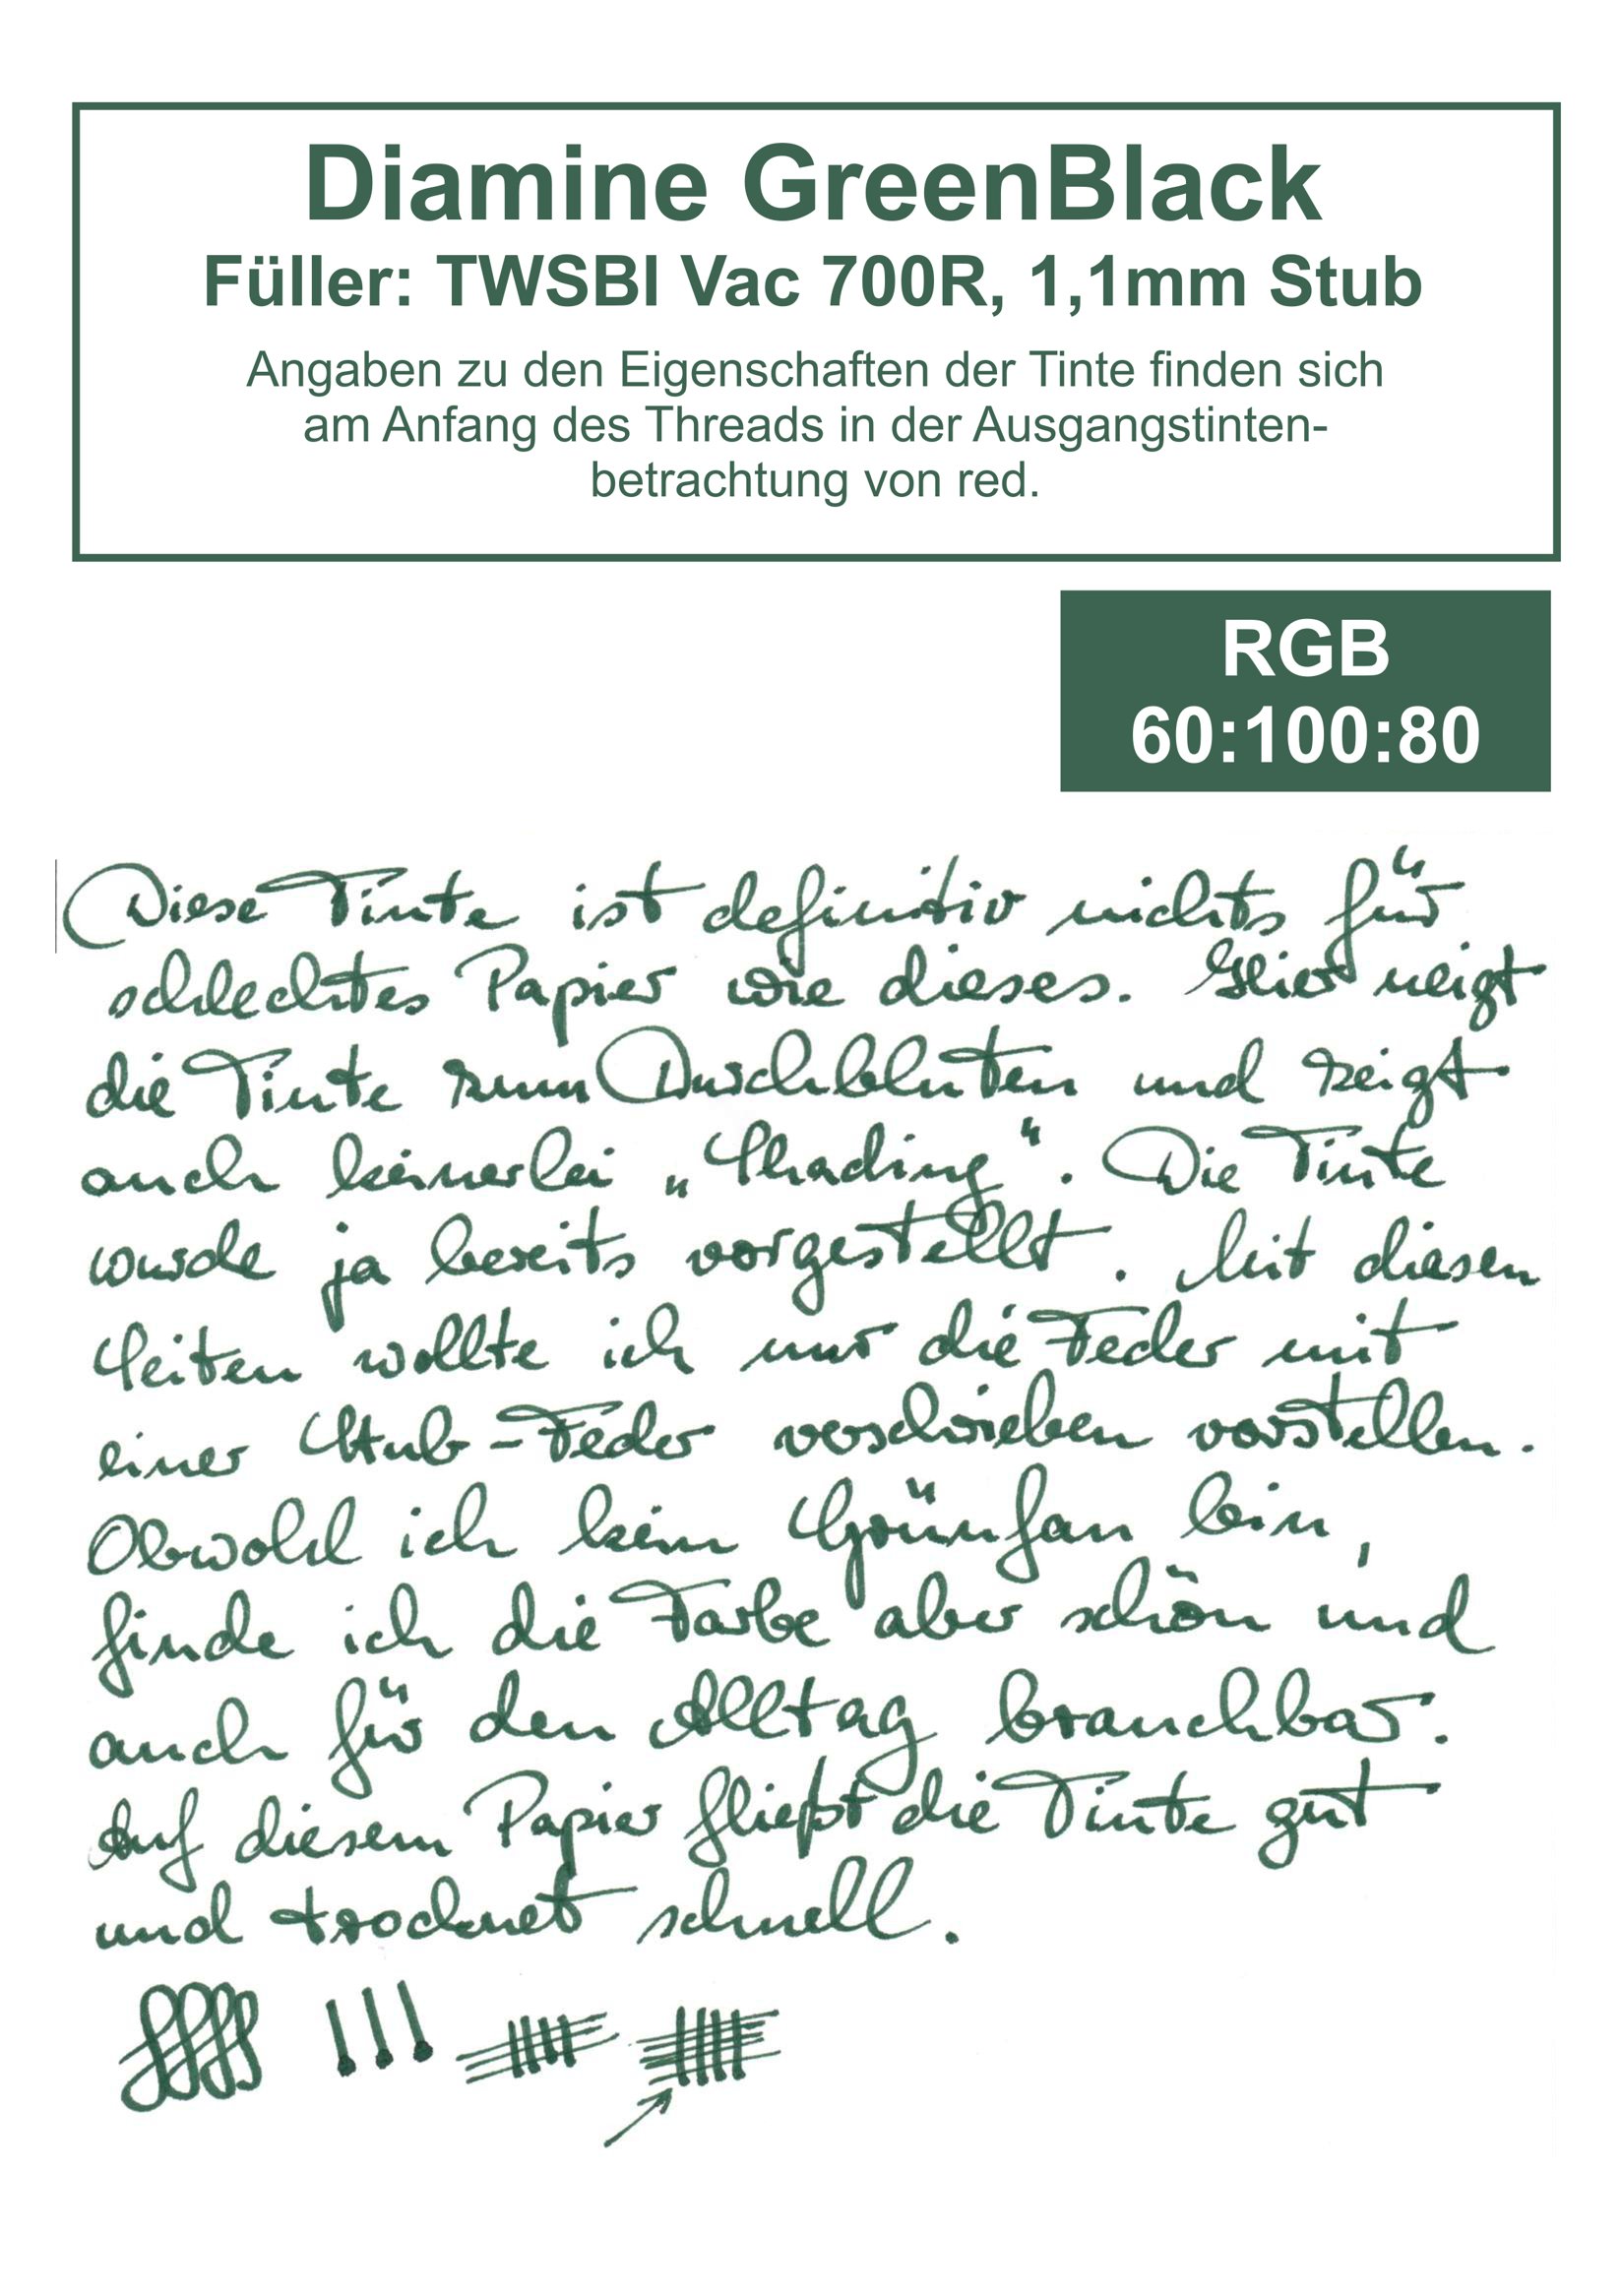 Diamine GreenBlack
Füller: TWSBI Vac 700R, 1,1mm Stub
Angaben zu den Eigenschaften der Tinte finden sich
am Anfang des Threads in der Ausgangstinten-
betrachtung von red.
RGB
60:100:80
Diese Tinte ist definitiv nichts für
schlechtes Papier wie dieses. Hier neigt
die Tinte zum Durchbluten und zeigt
auch keinerlei „Shading“. Die Tinte
wurde ja bereits vorgestellt. Mit diesen
Seiten wollte ich nur die Feder mit
einer Stub-Feder verschrieben vorstellen.
Obwohl ich kein Grünfan bin,
finde ich die Farbe aber schön und
auch für den Alltag brauchbar.
Auf diesem Papier fließt die Tinte gut
und trocknet schnell.